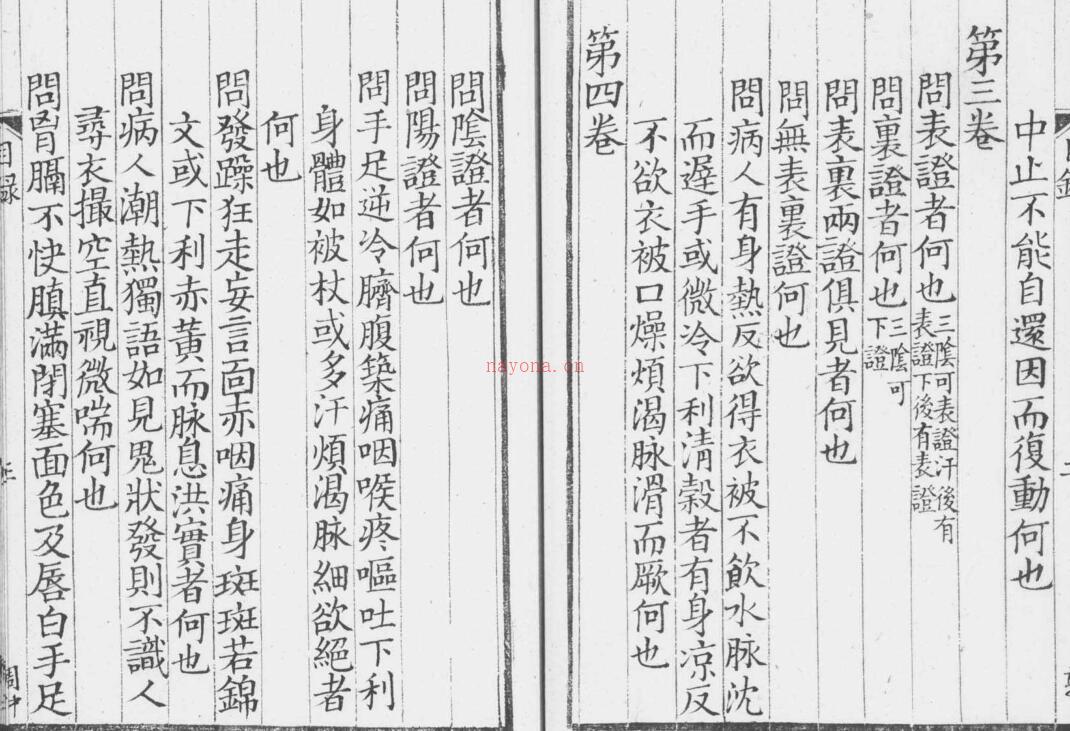 中止不能自還因而復動何也
第三卷
問表證者何也三陰可表證汗後有
表證下後有表證
問裏證者何也三陰可
下證
問表裏兩證俱見者何也
問無表裏證何也
問病人有身熱反欲得衣被不飲水脉沈
而遲手或微冷下利清穀者有身凉反
不欲衣被口燥煩渴脉滑而厥何也
第四卷
問陰證者何也
問陽證者何也
問手足逆冷臍腹築痛咽喉疼嘔吐下利
身體如被杖或多汗煩渴脉細欲絕者
何也
問發躁狂走妄言面赤咽痛身斑斑若錦
文或下利赤黃而脉息洪實者何也
問病人潮熱獨語如見鬼狀發則不識人
尋衣撮空直視微喘何也
問胷膈不快䐜滿閉塞面色及唇白手足
目録
nayona.com